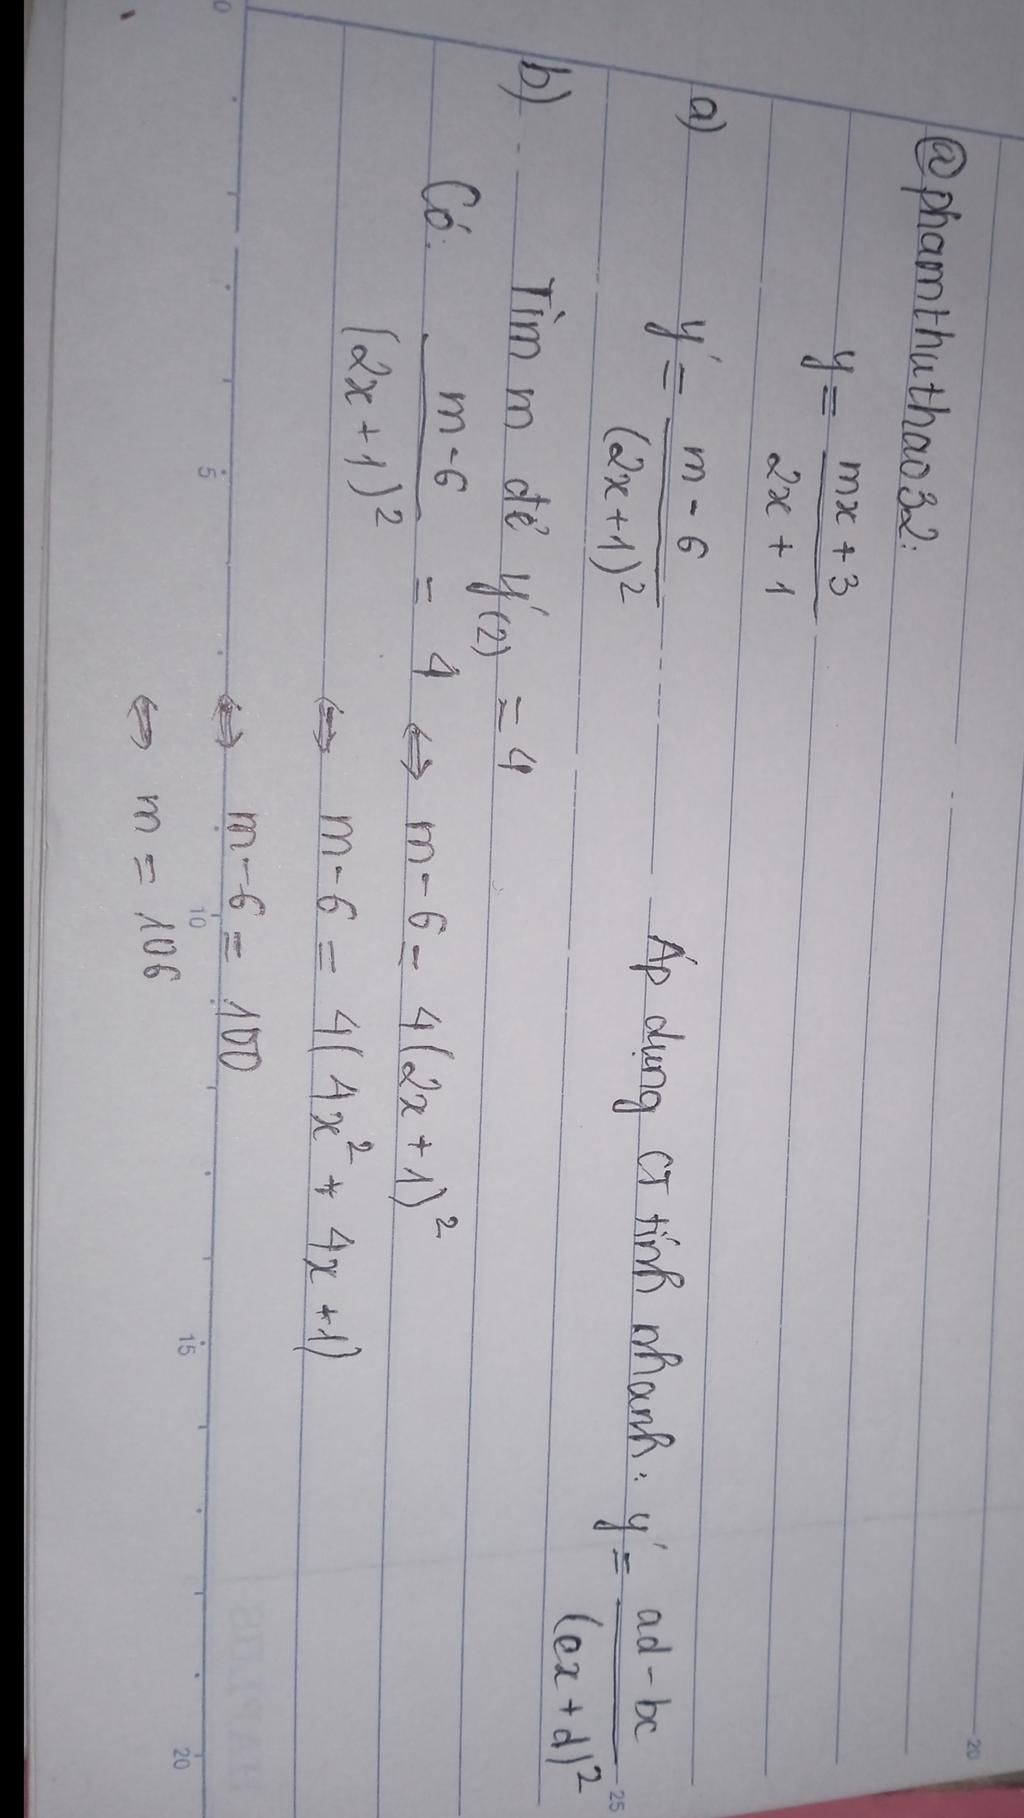 @phamthuthao32:
y = (mx + 3)/(2x + 1)
a) y' = (m - 6)/(2x + 1)² Áp dụng CT tính nhanh: y' = (ad - bc)/(cx + d)²
b) Tìm m để y'(2) = 4
Có: (m - 6)/(2x + 1)² = 4 ⇔ m - 6 = 4(2x + 1)²
⇔ m - 6 = 4(4x² + 4x + 1)
⇔ m - 6 = 100
⇔ m = 106
0 5 10 15 20
20
25